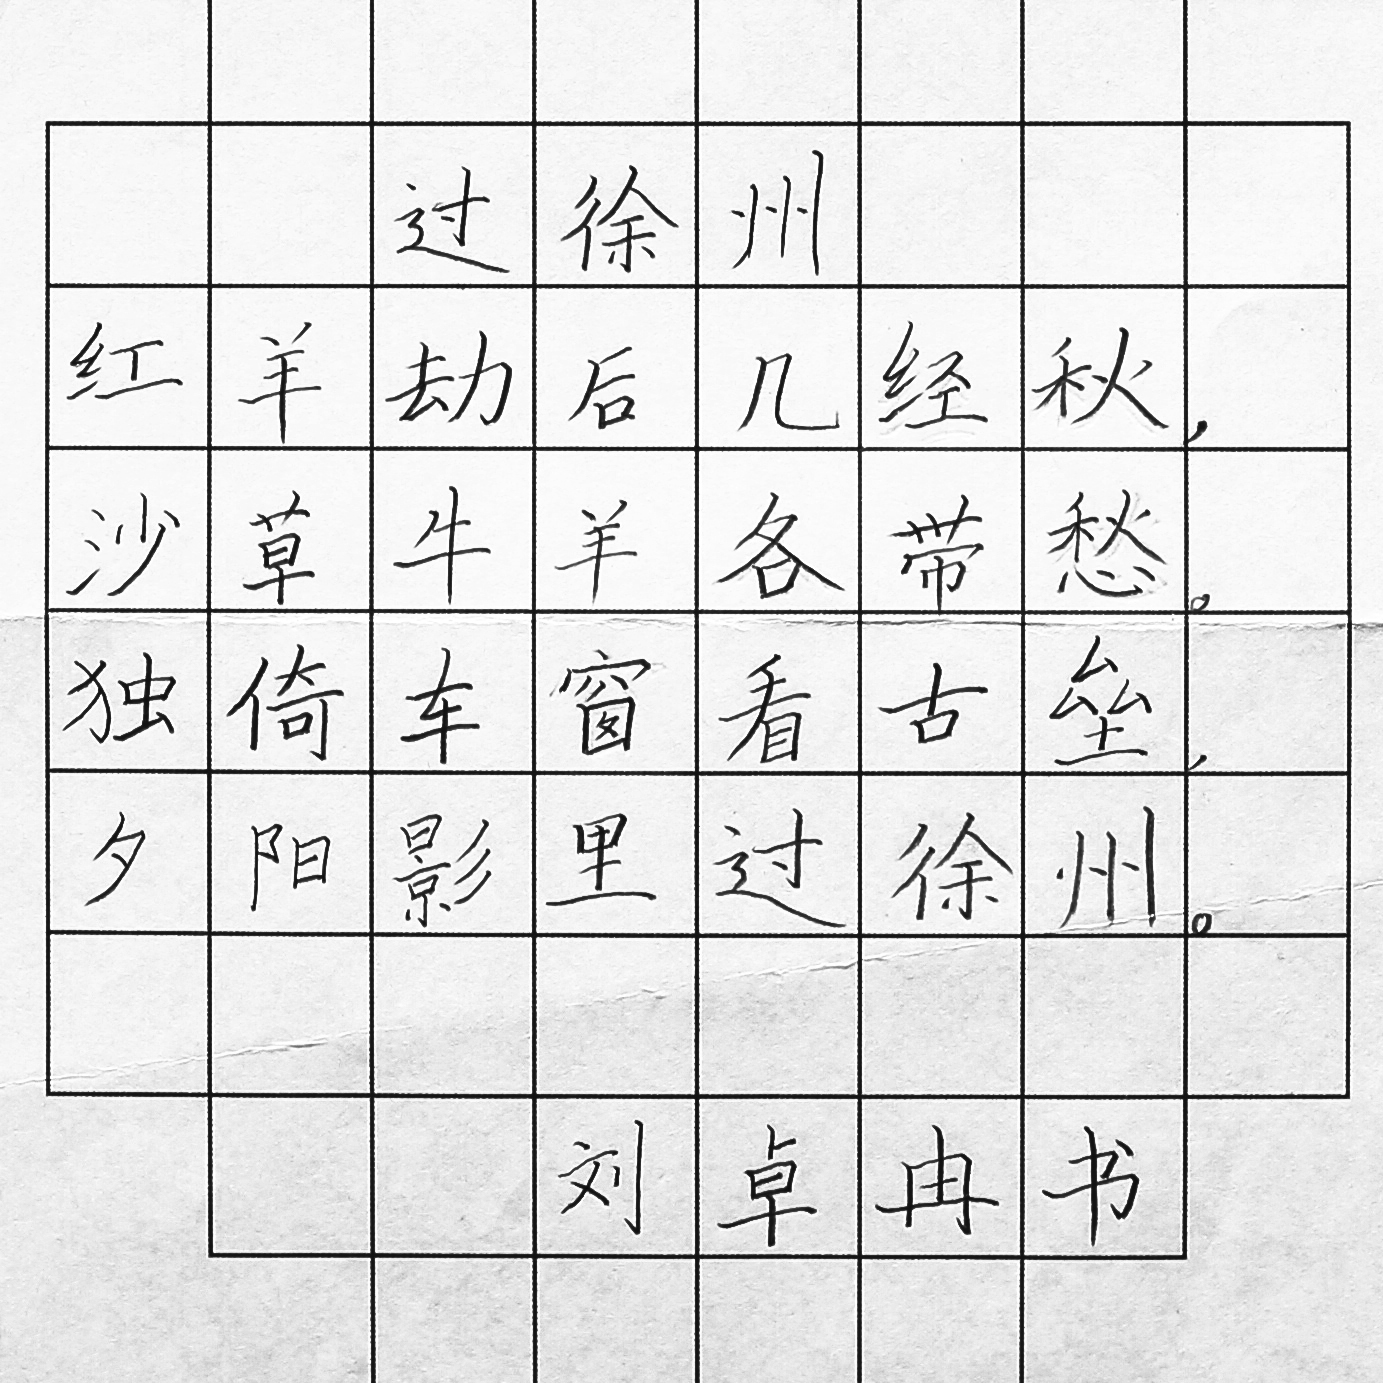 过徐州
红羊劫后几经秋，
沙草牛羊各带愁。
独倚车窗看古垒，
夕阳影里过徐州。
刘卓冉书